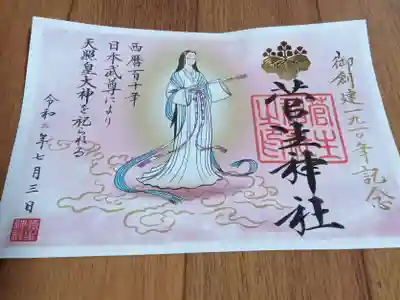 御創建一九一〇年記念
菅生神社
西暦百十年
日本武尊により
天照皇大神を祀られる
令和二年七月三日